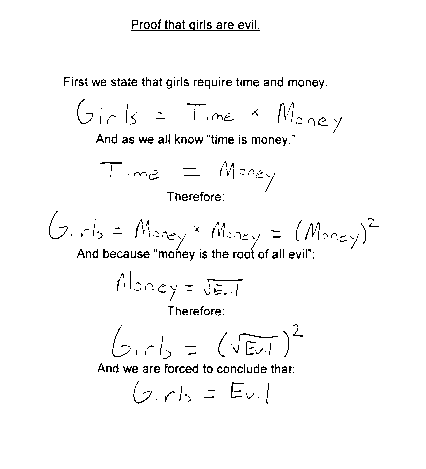 Proof that girls are evil.
First we state that girls require time and money.
Girls = Time × Money
And as we all know "time is money."
Time = Money
Therefore:
Girls = Money × Money = (Money)²
And because "money is the root of all evil":
Money = √Evil
Therefore:
Girls = (√Evil)²
And we are forced to conclude that:
Girls = Evil